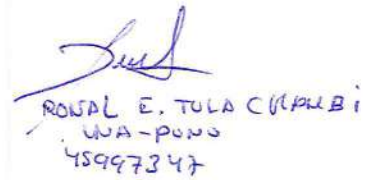 RONAL E. TULA CHAMBi
UNA-PUNO
45997347